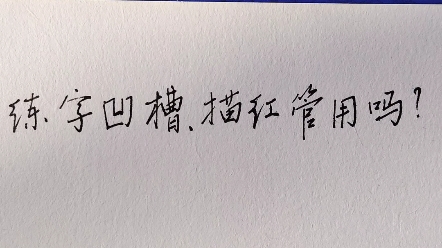 练字凹槽、描红管用吗?